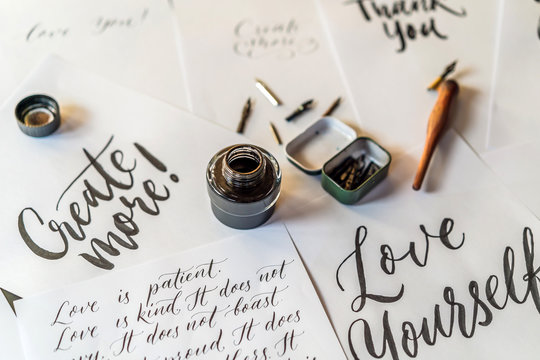 love you!
Create
more!
Thank
You
Create
more!
Love is patient.
Love is kind. It does not
It does not boast
proud. It does
It
Love
Yourself